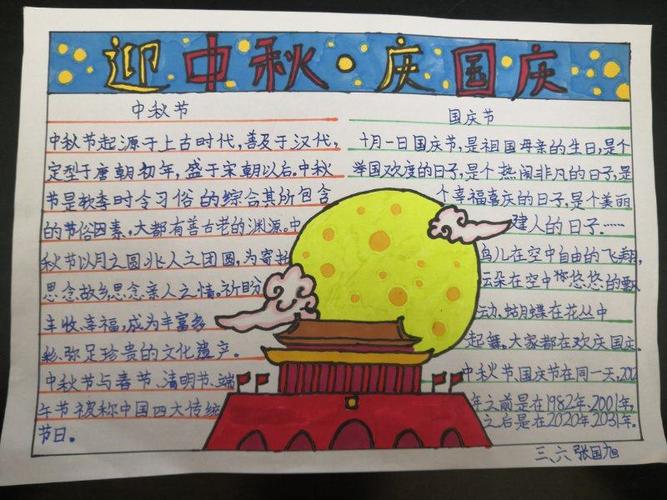 迎中秋·庆国庆
中秋节
中秋节起源于上古时代,普及于汉代,
定型于唐朝初年,盛于宋朝以后。中秋
节是秋季时令习俗的综合其所包含
的节俗因素,大都有着古老的渊源。中
秋节以月之圆兆人之团圆,为寄托
思念故乡,思念亲人之情。祈盼
丰收、幸福,成为丰富多
彩、弥足珍贵的文化遗产。
中秋节与春节、清明节、端
午节被称中国四大传统
节日。
国庆节
十月一日国庆节,是祖国母亲的生日,是个
举国欢度的日子,是个热闹非凡的日子,是
个幸福喜庆的日子,是个美丽
建人的日子……
鸟儿在空中自由的飞翔,
云朵在空中悠悠的飘
动,蝴蝶在花丛中
起舞。大家都在欢庆国庆.
中秋节、国庆节在同一天,202
年之前是在1982年、2001年,
之后是在2020年2031年.
三、六 张国旭